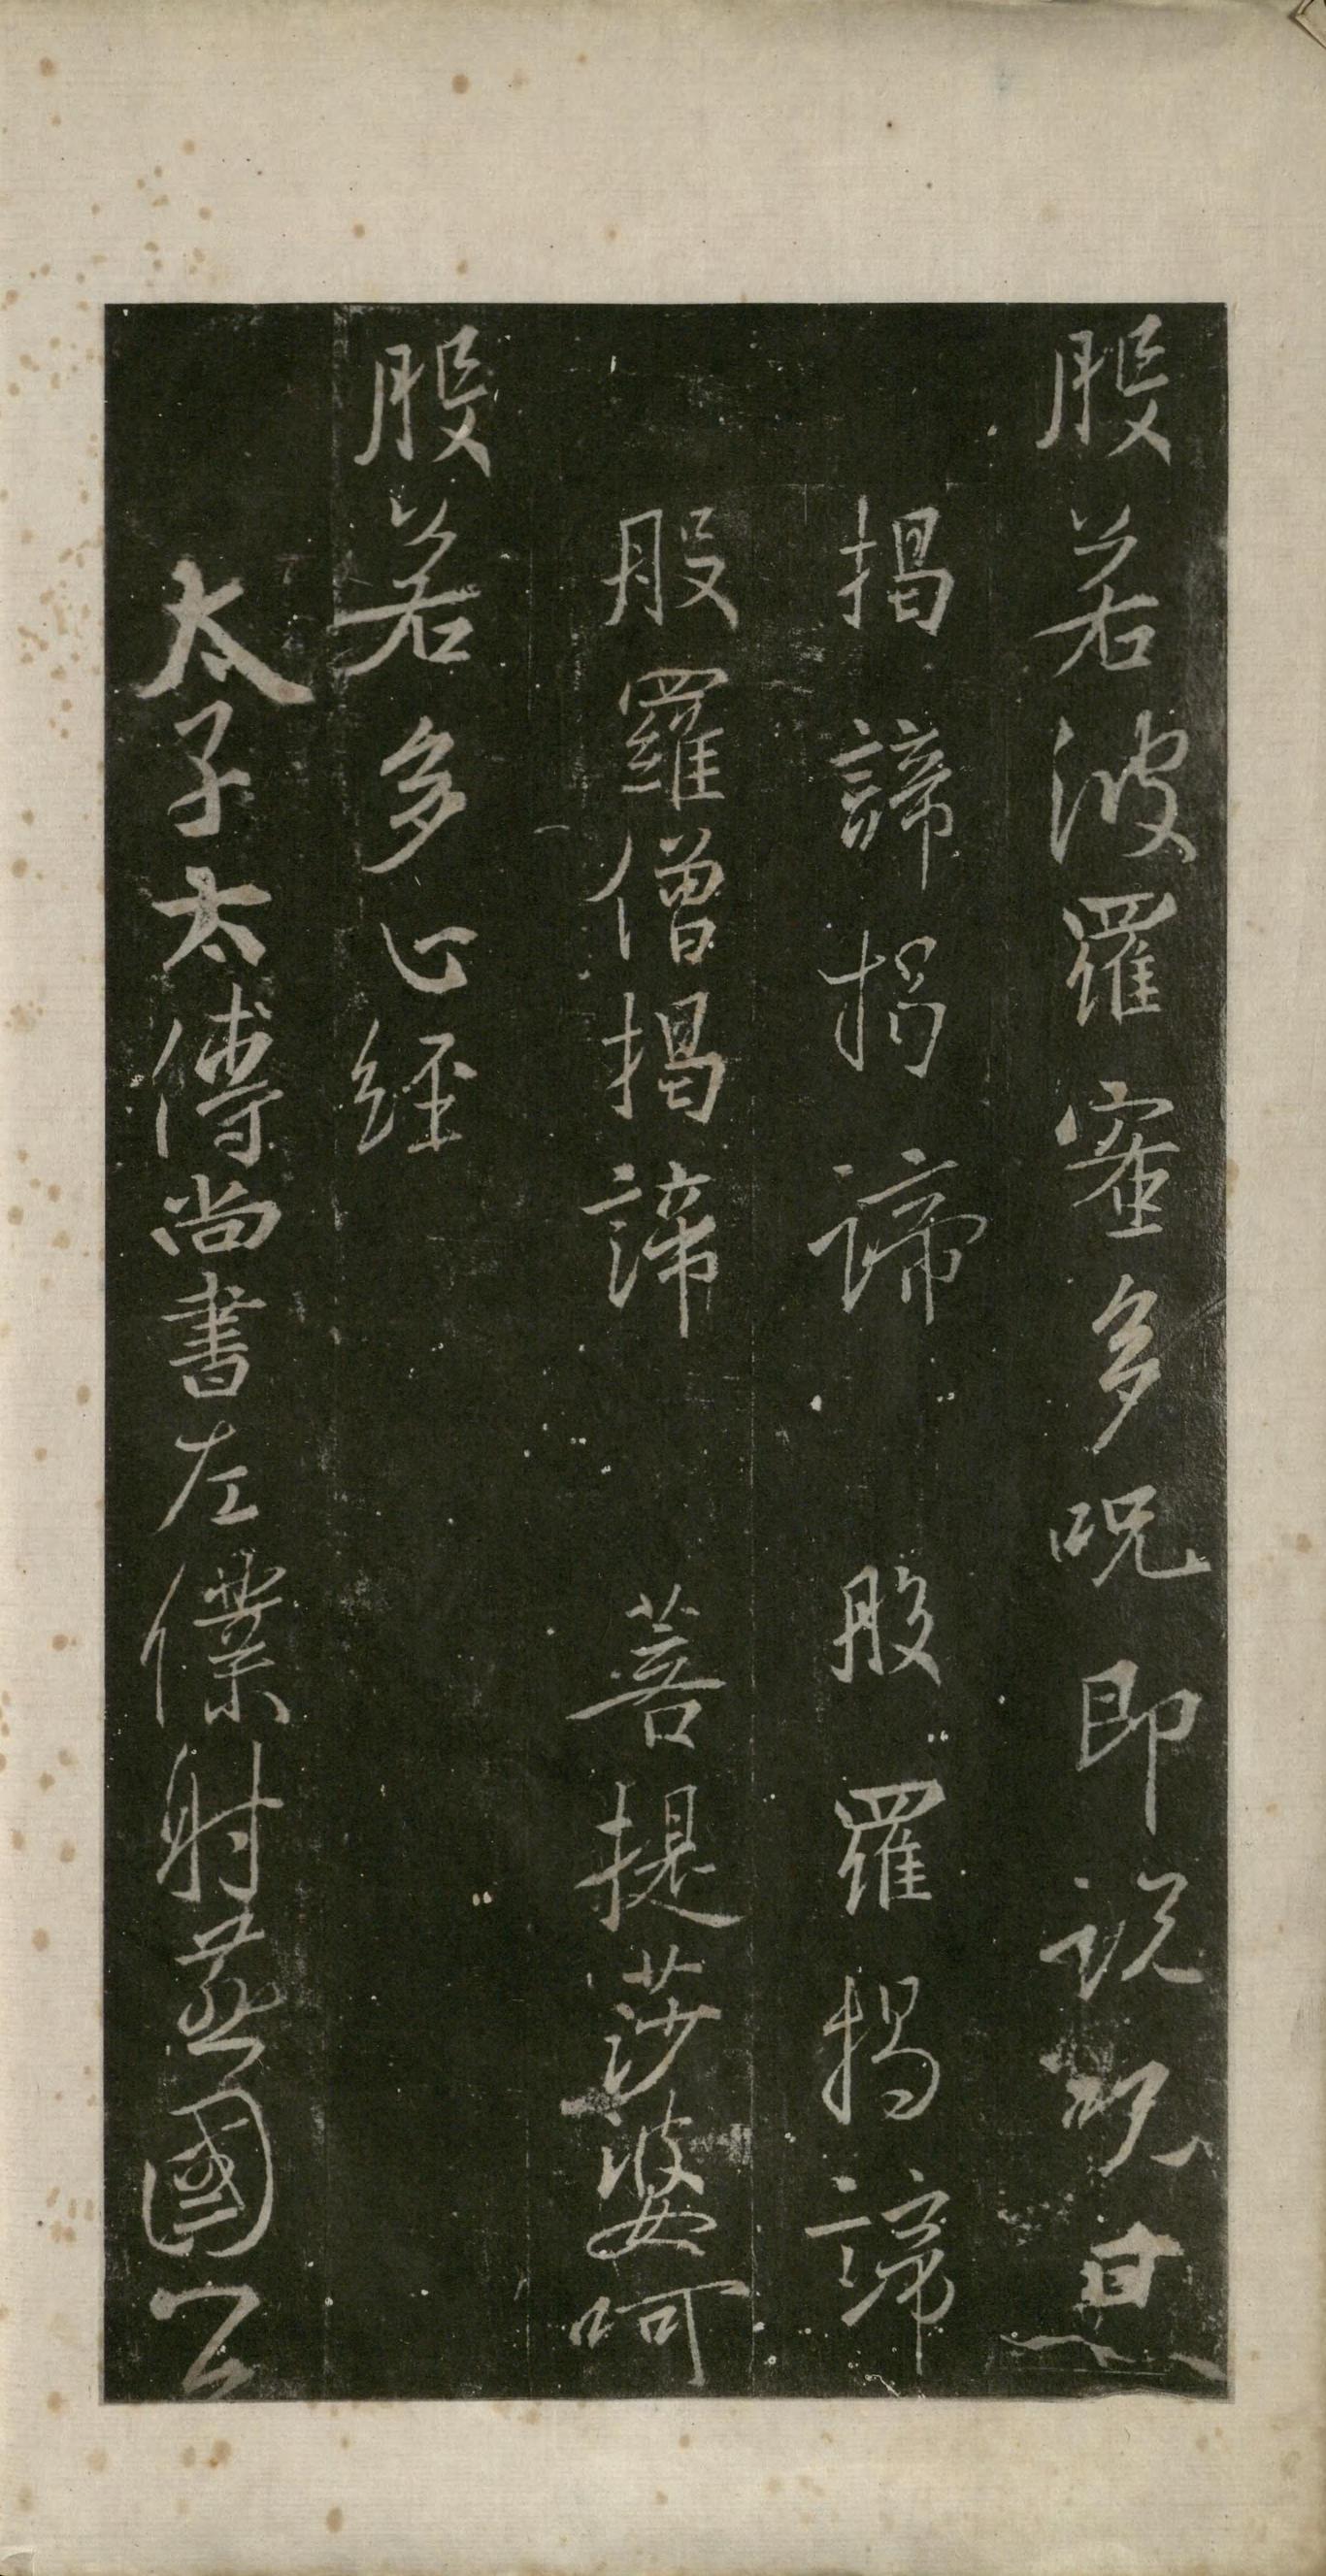 般若波羅蜜多咒即說咒曰
揭諦揭諦　般羅揭諦
般羅僧揭諦　菩提莎婆呵
般若多心經
太子太傅尚書左僕射燕國公